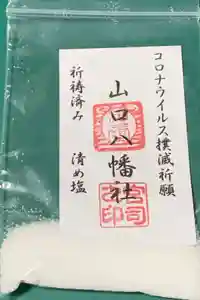 コロナウイルス撲滅祈願
山口八幡社
祈祷済み　清め塩
宮司之印